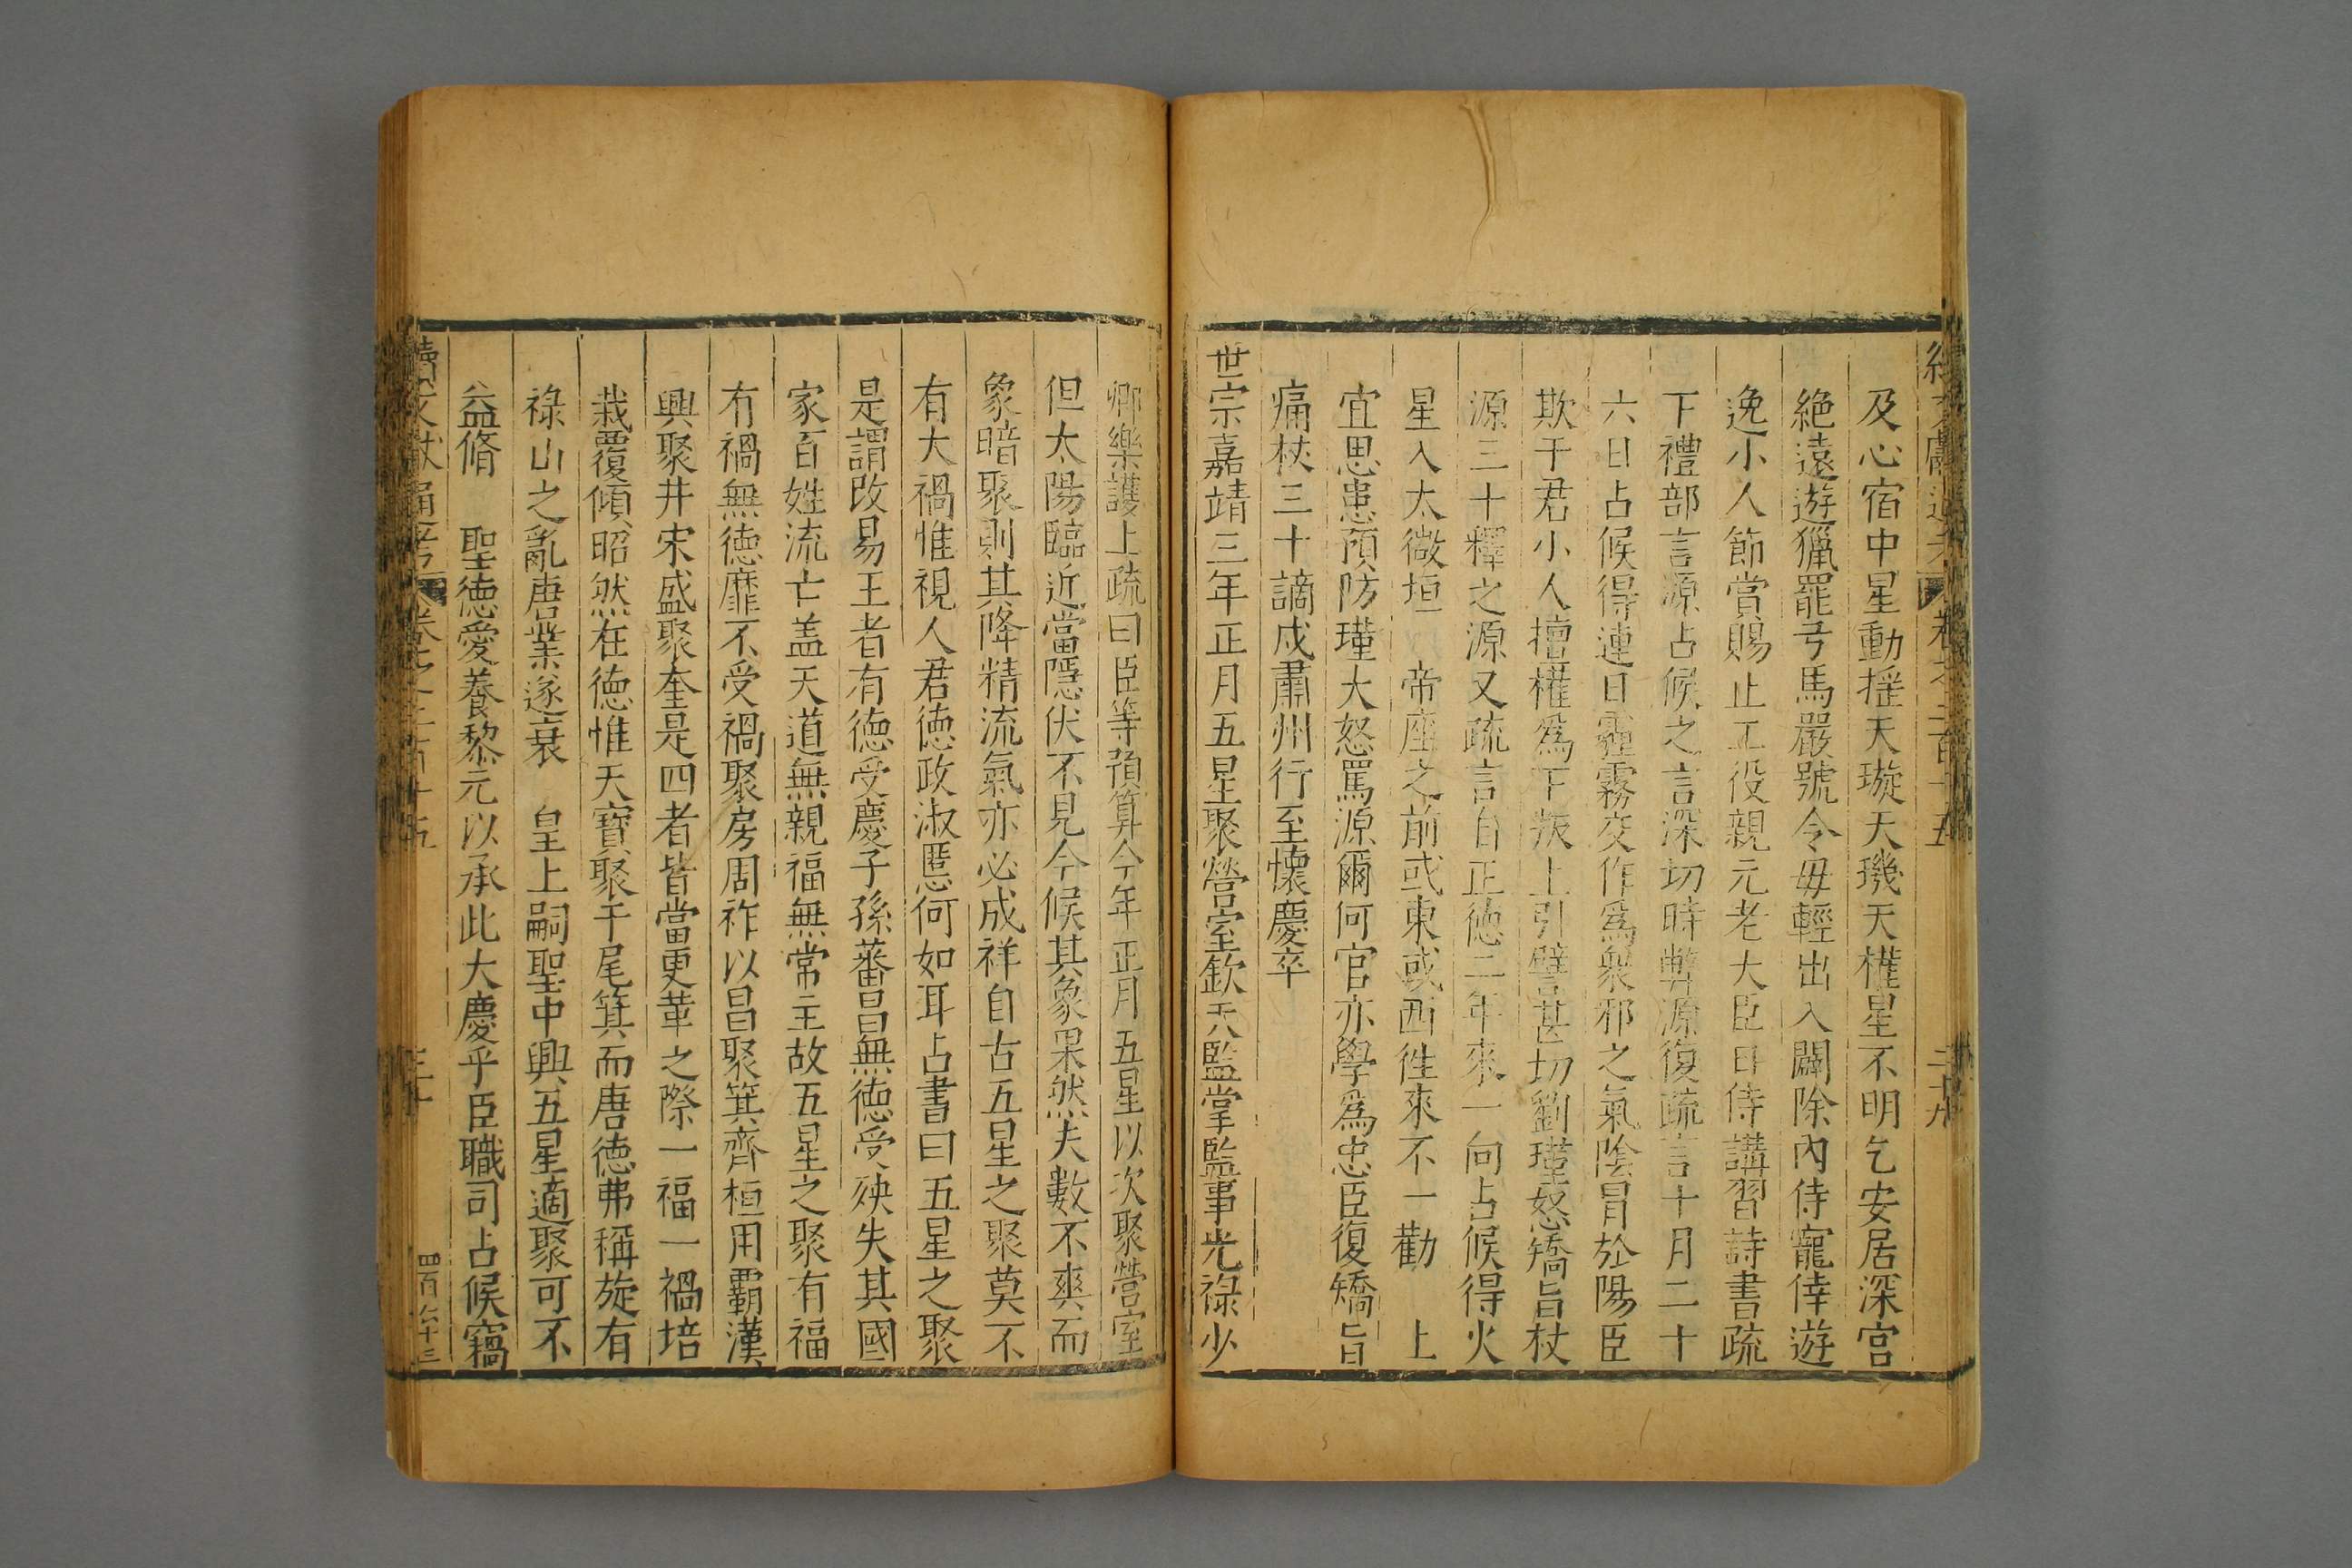 及心宿中星動揺天璇天璣天權星不明乞安居深宫
絶遠遊獵罷弓馬嚴號令毋輕出入闢除內侍寵倖遊
逸小人節賞賜止工役親元老大臣日侍講習詩書疏
下禮部言源占候之言深切時弊源復疏言十月二十
六日占候得連日霾霧交作爲衆邪之氣陰冒於陽臣
欺于君小人擅權爲下叛上引譬甚切劉瑾怒矯旨杖
源三十釋之源又疏言自正德二年來一向占候得火
星入太微垣 帝座之前或東或西徃來不一勸 上
宜思患預防瑾大怒罵源爾何官亦學爲忠臣復矯旨
痛杖三十謫戍肅州行至懷慶卒
世宗嘉靖三年正月五星聚營室欽天監掌監事光祿少
卿樂護上疏曰臣等預算今年正月五星以次聚營室
但太陽臨近當隱伏不見今候其象果然夫數不爽而
象暗聚則其降精流氣亦必成祥自古五星之聚莫不
有大禍惟視人君德政淑慝何如耳占書曰五星之聚
是謂改易王者有德受慶子孫蕃昌無德受殃失其國
家百姓流亡盖天道無親福無常主故五星之聚有福
有禍無德靡不受禍聚房周祚以昌聚箕齊桓用覇漢
興聚井宋盛聚奎是四者皆當更革之際一福一禍培
栽覆傾昭然在德惟天寳聚于尾箕而唐德弗稱旋有
祿山之亂唐業遂衰 皇上嗣聖中興五星適聚可不
益脩 聖德愛養黎元以承此大慶乎臣職司占候竊
四百六十三